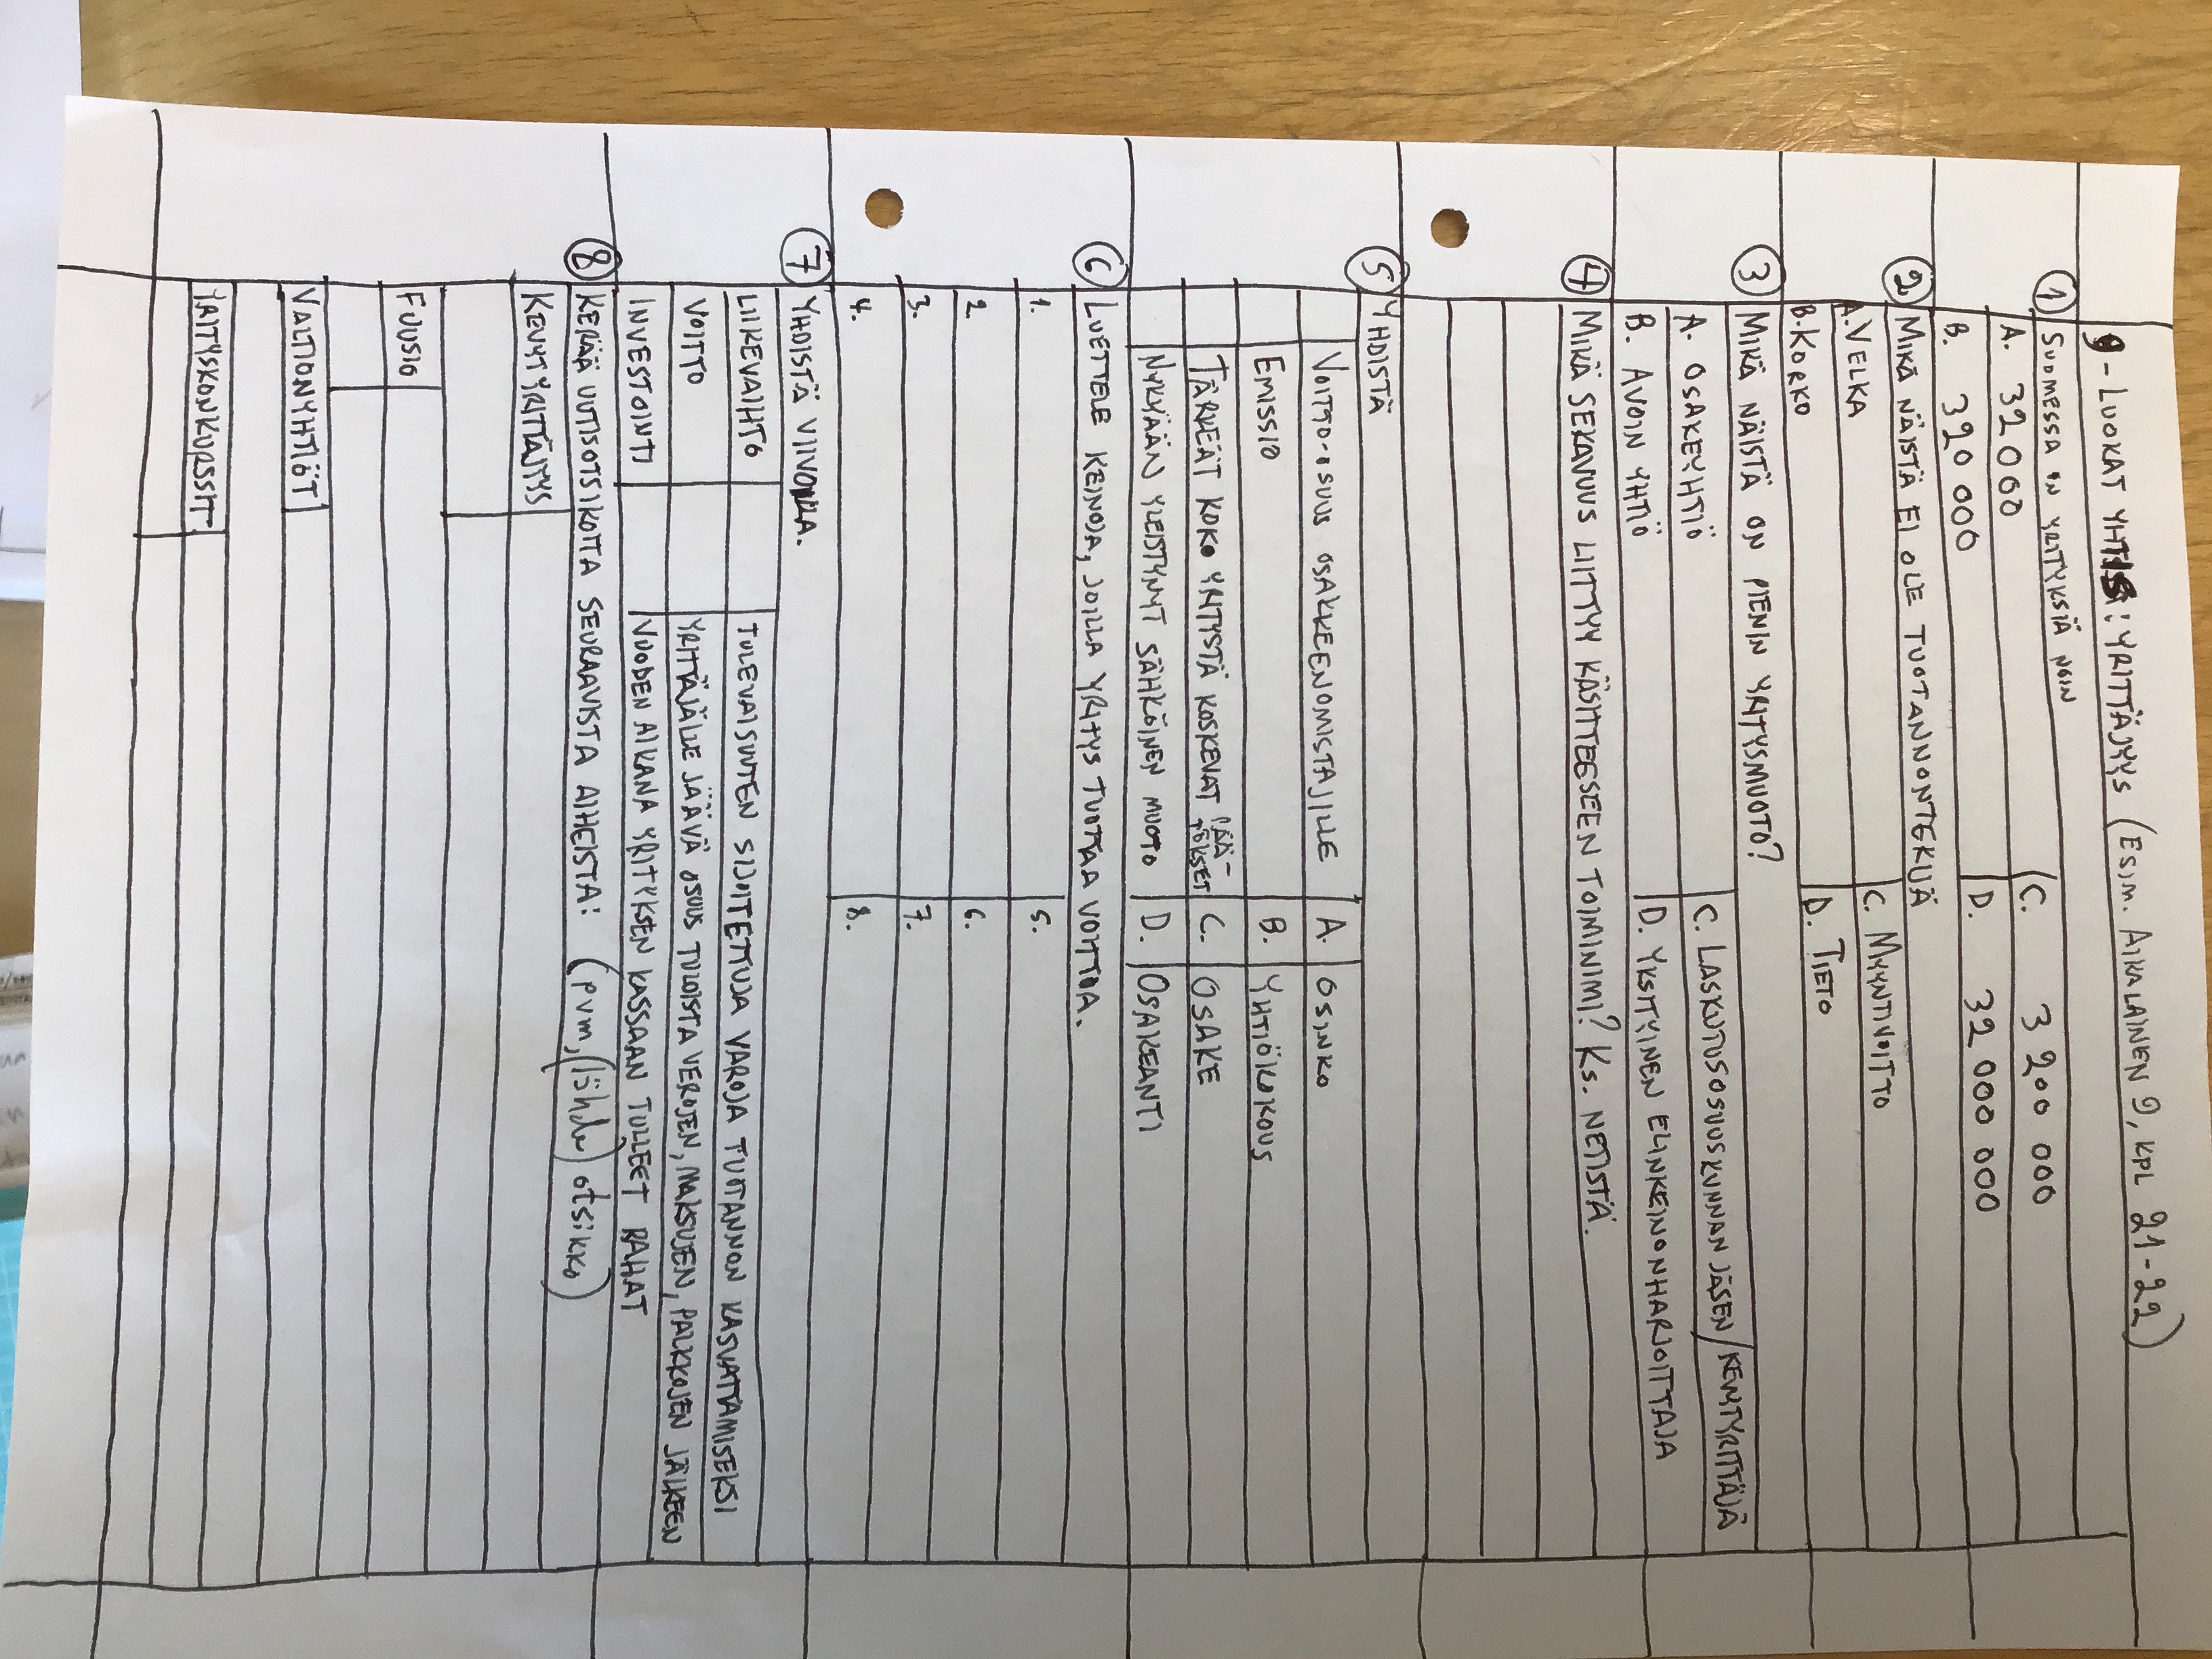 9-LUOKAT YHTS: YRITTÄJYYS (ESIM. AIKALAINEN 9, KPL 21-22)
① SUOMESSA ON YRITYKSIÄ NOIN
A. 32 000 C. 3 200 000
B. 320 000 D. 32 000 000
② MIKÄ NÄISTÄ EI OLE TUOTANNONTEKIJÄ
A. VELKA C. MYYNTIVOITTO
B. KORKO D. TIETO
③ MIKÄ NÄISTÄ ON PIENIN YRITYSMUOTO?
A. OSAKEYHTIÖ C. LASKUTUSOSUUSKUNNAN JÄSEN/KEVYTYRITTÄJÄ
B. AVOIN YHTIÖ D. YKSITYINEN ELINKEINONHARJOITTAJA
④ MIKÄ SEKAVUUS LIITTYY KÄSITTEESEEN TOIMINIMI? KS. NETISTÄ.
⑤ YHDISTÄ
VOITTO-OSUUS OSAKKEENOMISTAJILLE A. OSINKO
EMISSIO B. YHTIÖKOKOUS
TÄRKEÄT KOKO YRITYSTÄ KOSKEVAT PÄÄ-
TÖKSET C. OSAKE
NYKYÄÄN YLEISTYNYT SÄHKÖINEN MUOTO D. OSAKEANTI
⑥ LUETTELE KEINOJA, JOILLA YRITYS TUOTTAA VOITTOA.
1. 5.
2. 6.
3. 7.
4. 8.
⑦ YHDISTÄ VIIVOILLA.
LIIKEVAIHTO TULEVAISUUTEEN SIJOITETTUJA VAROJA TUOTANNON KASVATTAMISEKSI
VOITTO YRITTÄJÄLLE JÄÄVÄ OSUUS TULOISTA VEROJEN, MAKSUJEN, PALKKOJEN JÄLKEEN
INVESTOINTI VUODEN AIKANA YRITYKSEN KASSAAN TULLEET RAHAT
⑧ KERÄÄ UUTISOTSIKOITA SEURAAVISTA AIHEISTA: (pvm, (lähde) otsikko)
KEVYTYRITTÄJYYS
FUUSIO
VALTIONYHTIÖT
YRITYSKONKURSSIT